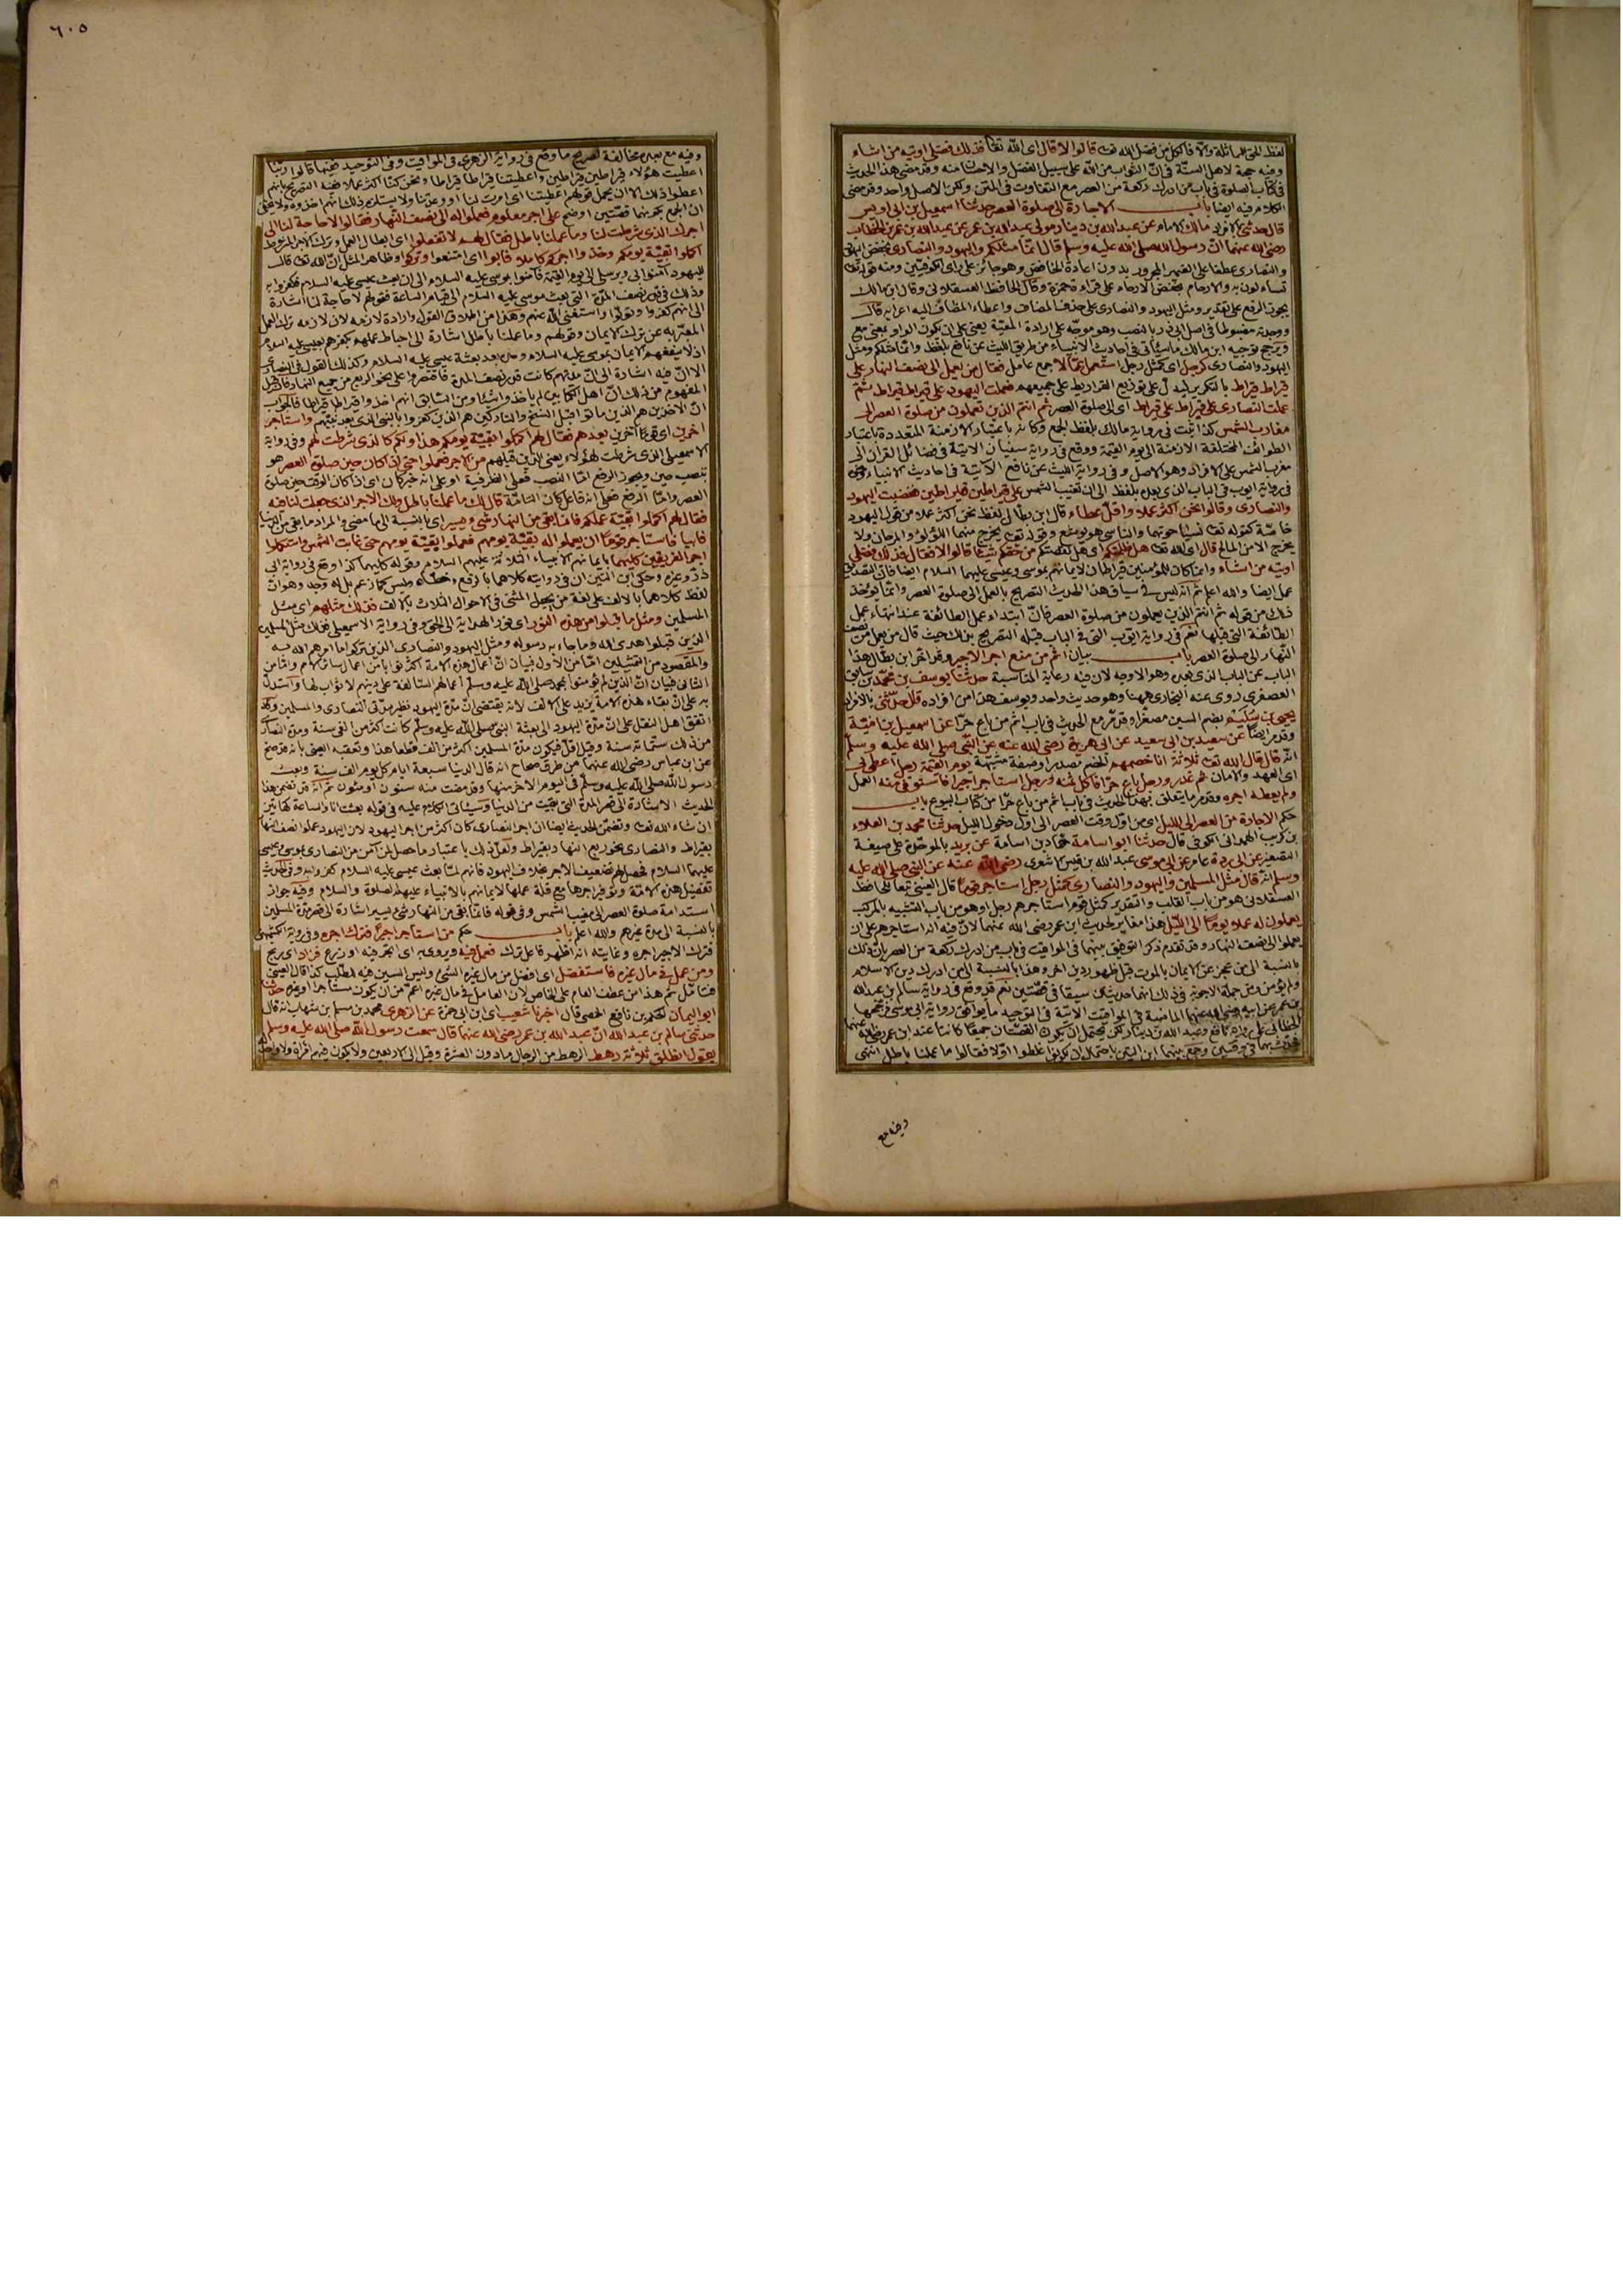 لفظ المماثلة والا فالكل من فضل الله تعالى قالوا لا قال اى الله تعالى فذلك فضلى اوتيه من اشاء
وفيه حجة لاهل السنة فى ان الثواب من الله على سبيل الفضل والاحسان منه وقد مضى هذا الحديث
فى كتاب الصلوة فى باب من ادرك ركعة من العصر مع التفاوت فى المتن ولكن الاصل واحد وقد مضى
الكلام فيه ايضا باب الاجارة الى صلوة العصر حدثنا اسمعيل بن ابى اويس
قال حدثنى بالافراد مالك الامام عن عبد الله بن دينار مولى عبد الله بن عمر عن عبد الله بن عمر بن الخطاب
رضى الله عنهما ان رسول الله صلى الله عليه وسلم قال انما مثلكم واليهود والنصارى بخفض اليهود
والنصارى عطفا على الضمير المجرور بدون اعادة الخافض وهو جائز على راى الكوفيين ومنه قوله تعالى
تساءلون به والارحام بخفض الارحام على قراءة حمزة وقال الحافظ العسقلانى وقال ابن مالك
يجوز الرفع على تقدير ومثل اليهود والنصارى على حذف المضاف واعطاء المضاف اليه اعرابه قال
ووجدته مضبوطا فى اصل ابى ذر بالنصب وهو موجه على ارادة المعية يعنى على ان يكون الواو بمعنى مع
ويرجح توجيه ابن مالك ما سيأتى فى احاديث الانبياء من طريق الليث عن نافع بلفظ وانما مثلكم ومثل
اليهود والنصارى كرجل اى كمثل رجل استعمل عمالا جمع عامل فقال من يعمل الى نصف النهار على
قيراط قيراط بالتكرير ليدل على توزيع القراريط على جميعهم فعملت اليهود على قيراط قيراط ثم
عملت النصارى على قيراط على قيراط اى الى صلوة العصر ثم انتم الذين تعملون من صلوة العصر الى
مغارب الشمس كذا ثبت فى رواية مالك بلفظ الجمع وكانه باعتبار الازمنة المتعددة باعتبار
الطوائف المختلفة الازمنة الى يوم القيمة ووقع فى رواية سفيان الاتية فى فضائل القرآن الى
مغرب الشمس على الافراد وهو الاصل وفى رواية الليث عن نافع الاتية فى احاديث الانبياء
فى رواية ايوب فى الباب الذى بلفظ الى ان تغيب الشمس على قيراطين قيراطين فغضبت اليهود
والنصارى وقالوا نحن اكثر عملا واقل عطاء قال ابن بطال لفظ نحن اكثر عملا من قول اليهود
خاصة كقوله تعالى نسيا حوتهما والناسى هو يوشع وقوله تعالى يخرج منهما اللؤلؤ والمرجان ولا
يخرج الا من المالح قال اى الله تعالى هل ظلمتكم اى هل نقصتكم من حقكم شيئا قالوا لا فقال فذلك فضلى
اوتيه من اشاء وانما كان للمؤمنين قيراطان لايمانهم بموسى وعيسى عليهما السلام ايضا فان التصديق
عمل ايضا والله اعلم ثم انه ليس فى سياق هذا الحديث التصريح بالعمل الى صلوة العصر وانما يؤخذ
ذلك من قوله ثم انتم الذين يعملون من صلوة العصر فان ابتداء عمل الطائفة عند انتهاء عمل
الطائفة التى قبلها نعم فى رواية ايوب التى فى الباب قبله التصريح بذلك حيث قال من يعمل من نصف
النهار الى صلوة العصر باب بيان اثم من منع اجر الاجير وقد اخر ابن بطال هذا
الباب عن الباب الذى بعده وهو الاوجه لان فيه رعاية المناسبة حدثنا يوسف بن محمد بن سابق
العصفرى روى عنه البخارى ههنا وهو حديث واحد ويوسف هذا من افراده قال حدثنى بالافراد
يحيى بن سليم بضم السين مصغرا وقد مر مع الحديث فى باب اثم من باع حرا عن اسمعيل بن امية
وقد مر ايضا عن سعيد بن ابى سعيد عن ابى هريرة رضى الله عنه عن النبى صلى الله عليه وسلم
انه قال قال الله تعالى ثلاثة انا خصمهم الخصم مصدر او صفة مشبهة يوم القيمة رجل اعطى بى
اى العهد والامان ثم غدر ورجل باع حرا فاكل ثمنه ورجل استاجر اجيرا فاستوفى منه العمل
ولم يعطه اجره وقد مر ما يتعلق بهذا الحديث فى باب اثم من باع حرا من كتاب البيوع باب
حكم الاجارة من العصر الى الليل اى من اول وقت العصر الى اول دخول الليل حدثنا محمد بن العلاء
بن كريب الهمدانى الكوفى قال حدثنا ابو اسامة حماد بن اسامة عن بريد بالموحدة على صيغة
التصغير عن ابى بردة عامر عن ابى موسى عبد الله بن قيس الاشعرى رضى الله عنه عن النبى صلى الله عليه
وسلم انه قال مثل المسلمين واليهود والنصارى كمثل رجل استاجر قوما قال العينى تبعا للحافظ
العسقلانى هو من باب القلب والتقدير كمثل قوم استاجرهم رجل او هو من باب التشبيه بالمركب
يعملون له عملا يوما الى الليل هذا مغاير لحديث ابن عمر رضى الله عنهما لان فيه انه استاجرهم على ان
يعملوا الى نصف النهار وقد تقدم ذكر التوفيق بينهما فى المواقيت فى باب من ادرك ركعة من العصر بان ذلك
بالنسبة الى من عجز عن الايمان بالموت قبل ظهور دين اخر وهذا بالنسبة الى من ادرك دين الاسلام
ولم يؤمن ومن جملة الاجوبة فى ذلك انهما حديثان سيقا فى قصتين نعم قد وقع فى رواية سالم بن عبد الله
بن عمر عن ابيه رضى الله عنهما الماضية فى المواقيت الاتية فى التوحيد ما يوافق رواية ابى موسى فرجحها
الخطابى على رواية نافع وعبد الله بن دينار لكن يحتمل ان يكون القصتان جميعا كانتا عند ابن عمر رضى الله عنهما
فحدث بهما فى وقتين وجمع بينهما ابن التين باحتمال ان يكونوا غضبوا اولا فقالوا ما عملنا باطل انتهى
وفيه مع
٦٠٥
وفيه مع بعده مخالفة لصريح ما وقع فى رواية الزهرى فى المواقيت وفى التوحيد ففيها قالوا ربنا
اعطيت هؤلاء قيراطين قيراطين واعطيتنا قيراطا قيراطا ونحن كنا اكثر عملا ففيه التصريح بانهم
اعطوا ذلك الا ان يحمل قولهم اعطيتنا اى امرت لنا او وعدتنا ولا يستلزم ذلك انهم اخذوه ولا يخفى
ان الجمع بكونهما قصتين اوضح على اجر معلوم فعملوا له الى نصف النهار فقالوا لا حاجة لنا الى
اجرك الذى شرطت لنا وما عملنا باطل فقال لهم لا تفعلوا اى ابطال العمل وترك الاجر المشروط
اكملوا بقية يومكم وخذوا اجركم كاملا فابوا اى امتنعوا وتركوا وظاهر المثل ان الله تعالى قال
لليهود آمنوا بى وبرسلى الى يوم القيمة فآمنوا بموسى عليه السلام الى ان بعث عيسى عليه السلام فكفروا به
وذلك فى قدر نصف المدة التى بعث موسى عليه السلام الى قيام الساعة فقولهم لا حاجة لنا اشارة
الى انهم كفروا وتولوا واستغنى الله عنهم وهذا من اطلاق القول وارادة لازمه لان لازمه ترك العمل
المعبر به عن ترك الايمان وقولهم وما عملنا باطل اشارة الى احباط عملهم بكفرهم بعيسى عليه السلام
اذ لا ينفعهم الايمان بموسى عليه السلام وحده بعد بعثة عيسى عليه السلام وكذلك القول فى النصارى
الا ان فيه اشارة الى ان مدتهم كانت قدر نصف المدة فاقتصروا على نحو الربع من جميع النهار فان قيل
المفهوم من ذلك ان اهل الكتابين لم ياخذوا شيئا ومن السابق انهم اخذوا قيراطا قيراطا فالجواب
ان الاخذين هم الذين ماتوا قبل النسخ والتاركين هم الذين كفروا بالنبى الذى بعد نبيهم واستاجر
اخرين اى قوما آخرين بعدهم فقال لهم اكملوا بقية يومكم هذا ولكم كالذى شرطت لهم وفى رواية
الاسمعيلى الذى شرطت لهؤلاء يعنى الذين قبلهم من الاجر فعملوا حتى اذا كان حين صلوة العصر هو
بنصب حين ويجوز الرفع اما النصب فعلى الظرفية او على انه خبر كان اى اذا كان الوقت حين صلوة
العصر واما الرفع فعلى انه فاعل كان التامة قالوا لك ما عملنا باطل ولك الاجر الذى جعلت لنا فيه
فقال لهم اكملوا بقية عملكم فانما بقى من النهار شئ يسير اى بالنسبة الى ما مضى والمراد ما بقى من الدنيا
فابيا فاستاجر قوما ان يعملوا له بقية يومهم فعملوا بقية يومهم حتى غابت الشمس واستكملوا
اجر الفريقين كليهما بايمانهم الانبياء الثلاثة عليهم السلام وقوله كليهما كذا وقع فى رواية ابى
ذر وغيره وحكى ابن التين ان فى روايته كلاهما بالرفع وخطأه وليس كما زعم بل له وجه وهو ان
لفظ كلاهما بالالف على لغة من يجعل المثنى فى الاحوال الثلاث بالالف فذلك مثلهم اى مثل
المسلمين ومثل ما قبلوا من هذا النور اى نور الهداية الى الحق وفى رواية الاسمعيلى فذلك مثل المسلمين
الذين قبلوا هدى الله وما جاء به رسوله ومثل اليهود والنصارى الذين تركوا ما امرهم الله به
والمقصود من التمثيلين اما من الاول فبيان ان اعمال هذه الامة اكثر ثوابا من اعمال سائر الامم واما من
الثانى فبيان ان الذين لم يؤمنوا بمحمد صلى الله عليه وسلم اعمالهم السالفة على دينهم لا ثواب لها واستدل
به على ان بقاء هذه الامة يزيد على الالف لانه يقتضى ان مدة اليهود نظير مدتى النصارى والمسلمين وقد
اتفق اهل النقل على ان مدة اليهود الى بعثة النبى صلى الله عليه وسلم كانت اكثر من الفى سنة ومدة النصارى
من ذلك ستمائة سنة وقيل اقل فيكون مدة المسلمين اكثر من الف قطعا هذا وتعقبه العينى بانه قد صح
عن ابن عباس رضى الله عنهما من طرق صحاح انه قال الدنيا سبعة ايام كل يوم الف سنة وبعث
رسول الله صلى الله عليه وسلم فى اليوم الاخر منها وقد مضت منه سنون او مئون ثم انه قد تضمن هذا
الحديث الاشارة الى قصر المدة التى بقيت من الدنيا وسيأتى الكلام عليه فى قوله بعثت انا والساعة كهاتين
ان شاء الله تعالى وتضمن الحديث ايضا ان اجر النصارى كان اكثر من اجر اليهود لان اليهود عملوا نصف النهار
بقيراط والنصارى نحو ربع النهار بقيراط ولعل ذلك باعتبار ما حصل لمن آمن من النصارى بموسى وعيسى
عليهما السلام فحصل لهم تضعيف الاجر بخلاف اليهود فانهم لما بعث عيسى عليه السلام كفروا به وفى الحديث
تفضيل هذه الامة وتوفير اجرها مع قلة عملها لايمانهم بالانبياء عليهم الصلوة والسلام وفيه جواز
استدامة صلوة العصر الى مغيب الشمس وفى قوله فانما بقى من النهار شئ يسير اشارة الى قصر مدة المسلمين
بالنسبة الى مدة غيرهم والله اعلم باب حكم من استاجر اجيرا فترك اجره وفى رواية الكشميهنى
فترك الاجير اجره وغايته انه اظهر فاعل ترك فعمل فيه ويروى به اى اتجر فيه او زرع فزاد اى ربح
ومن عمل فى مال غيره فاستفضل اى افضل من مال غيره الشئ وليس السين فيه للطلب كذا قال العينى
فتامل ثم هذا من عطف العام على الخاص لان العامل فى مال غيره اعم من ان يكون مستاجرا او غيره حدثنا
ابو اليمان الحكم بن نافع الحمصى قال اخبرنا شعيب اى ابن ابى حمزة عن الزهرى محمد بن مسلم بن شهاب انه قال
حدثنى سالم بن عبد الله ان عبد الله بن عمر رضى الله عنهما قال سمعت رسول الله صلى الله عليه وسلم
يقول انطلق ثلاثة رهط الرهط من الرجال ما دون العشرة وقيل الى الاربعين ولا يكون فيهم امرأة ولا واحد له